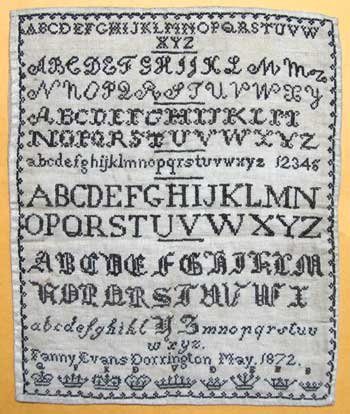 ABCDEFGHIJKLMNOPQRSTUVW
XYZ
ABCDEFGHIJKLMM
NNOPQRSTUVWXY
ABCDEFGHIJKLM
NOPQRSTUVWXYZ
abcdefghijklmnopqrstuvwxyz 12345
ABCDEFGHIJKLMN
OPQRSTUVWXYZ
ABCDEFGHIKLM
NOPQRSTUVWX
abcdefghikl YZ mnopqrstuv
wxyz.
Fanny Evans Dorrington May. 1872.